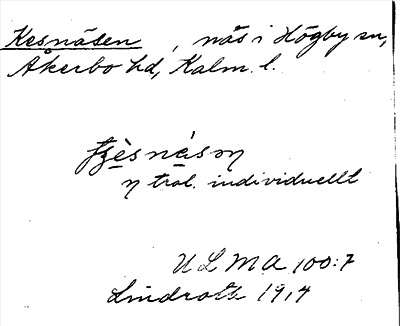 Kesnäsen, näs i Högby sn,
Åkerbo hd, Kalm. l.
η trol. individuellt
ULMA 100:7
Lindroth 1914